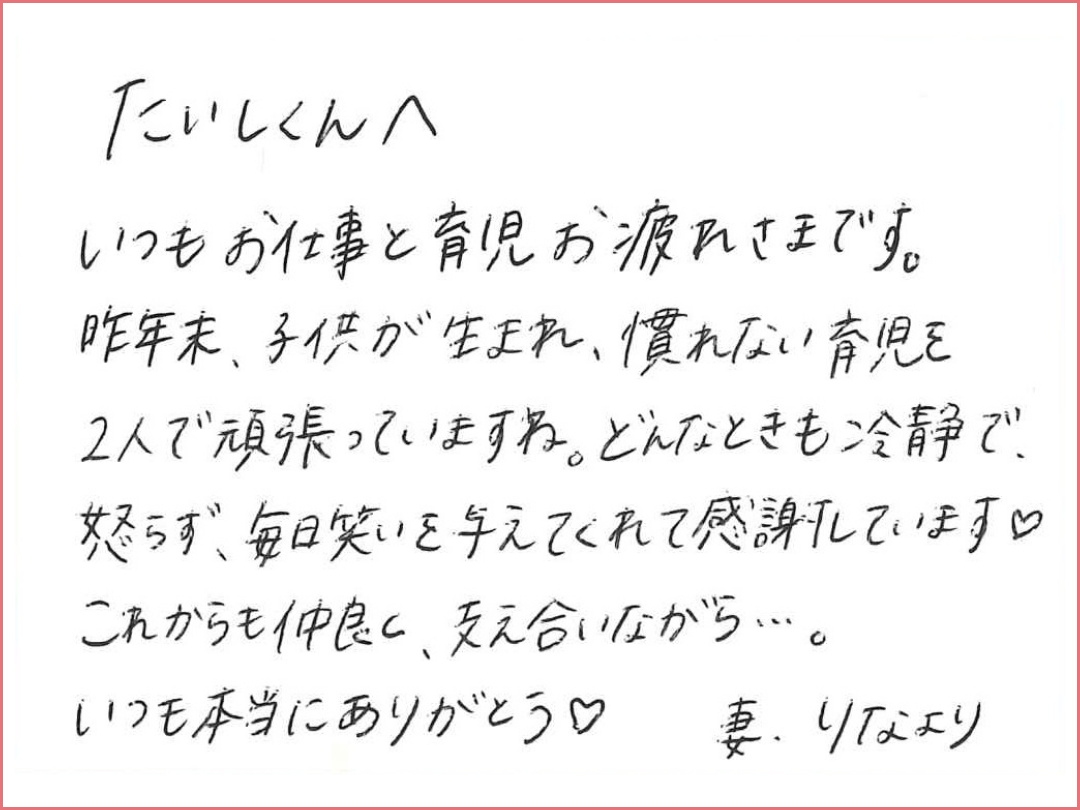 たいしくんへ
いつもお仕事と育児お疲れさまです。
昨年末、子供が生まれ、慣れない育児を
2人で頑張っていますね。どんなときも冷静で、
怒らず、毎日笑いを与えてくれて感謝しています♡
これからも仲良く、支え合いながら…。
いつも本当にありがとう♡
妻.りなより